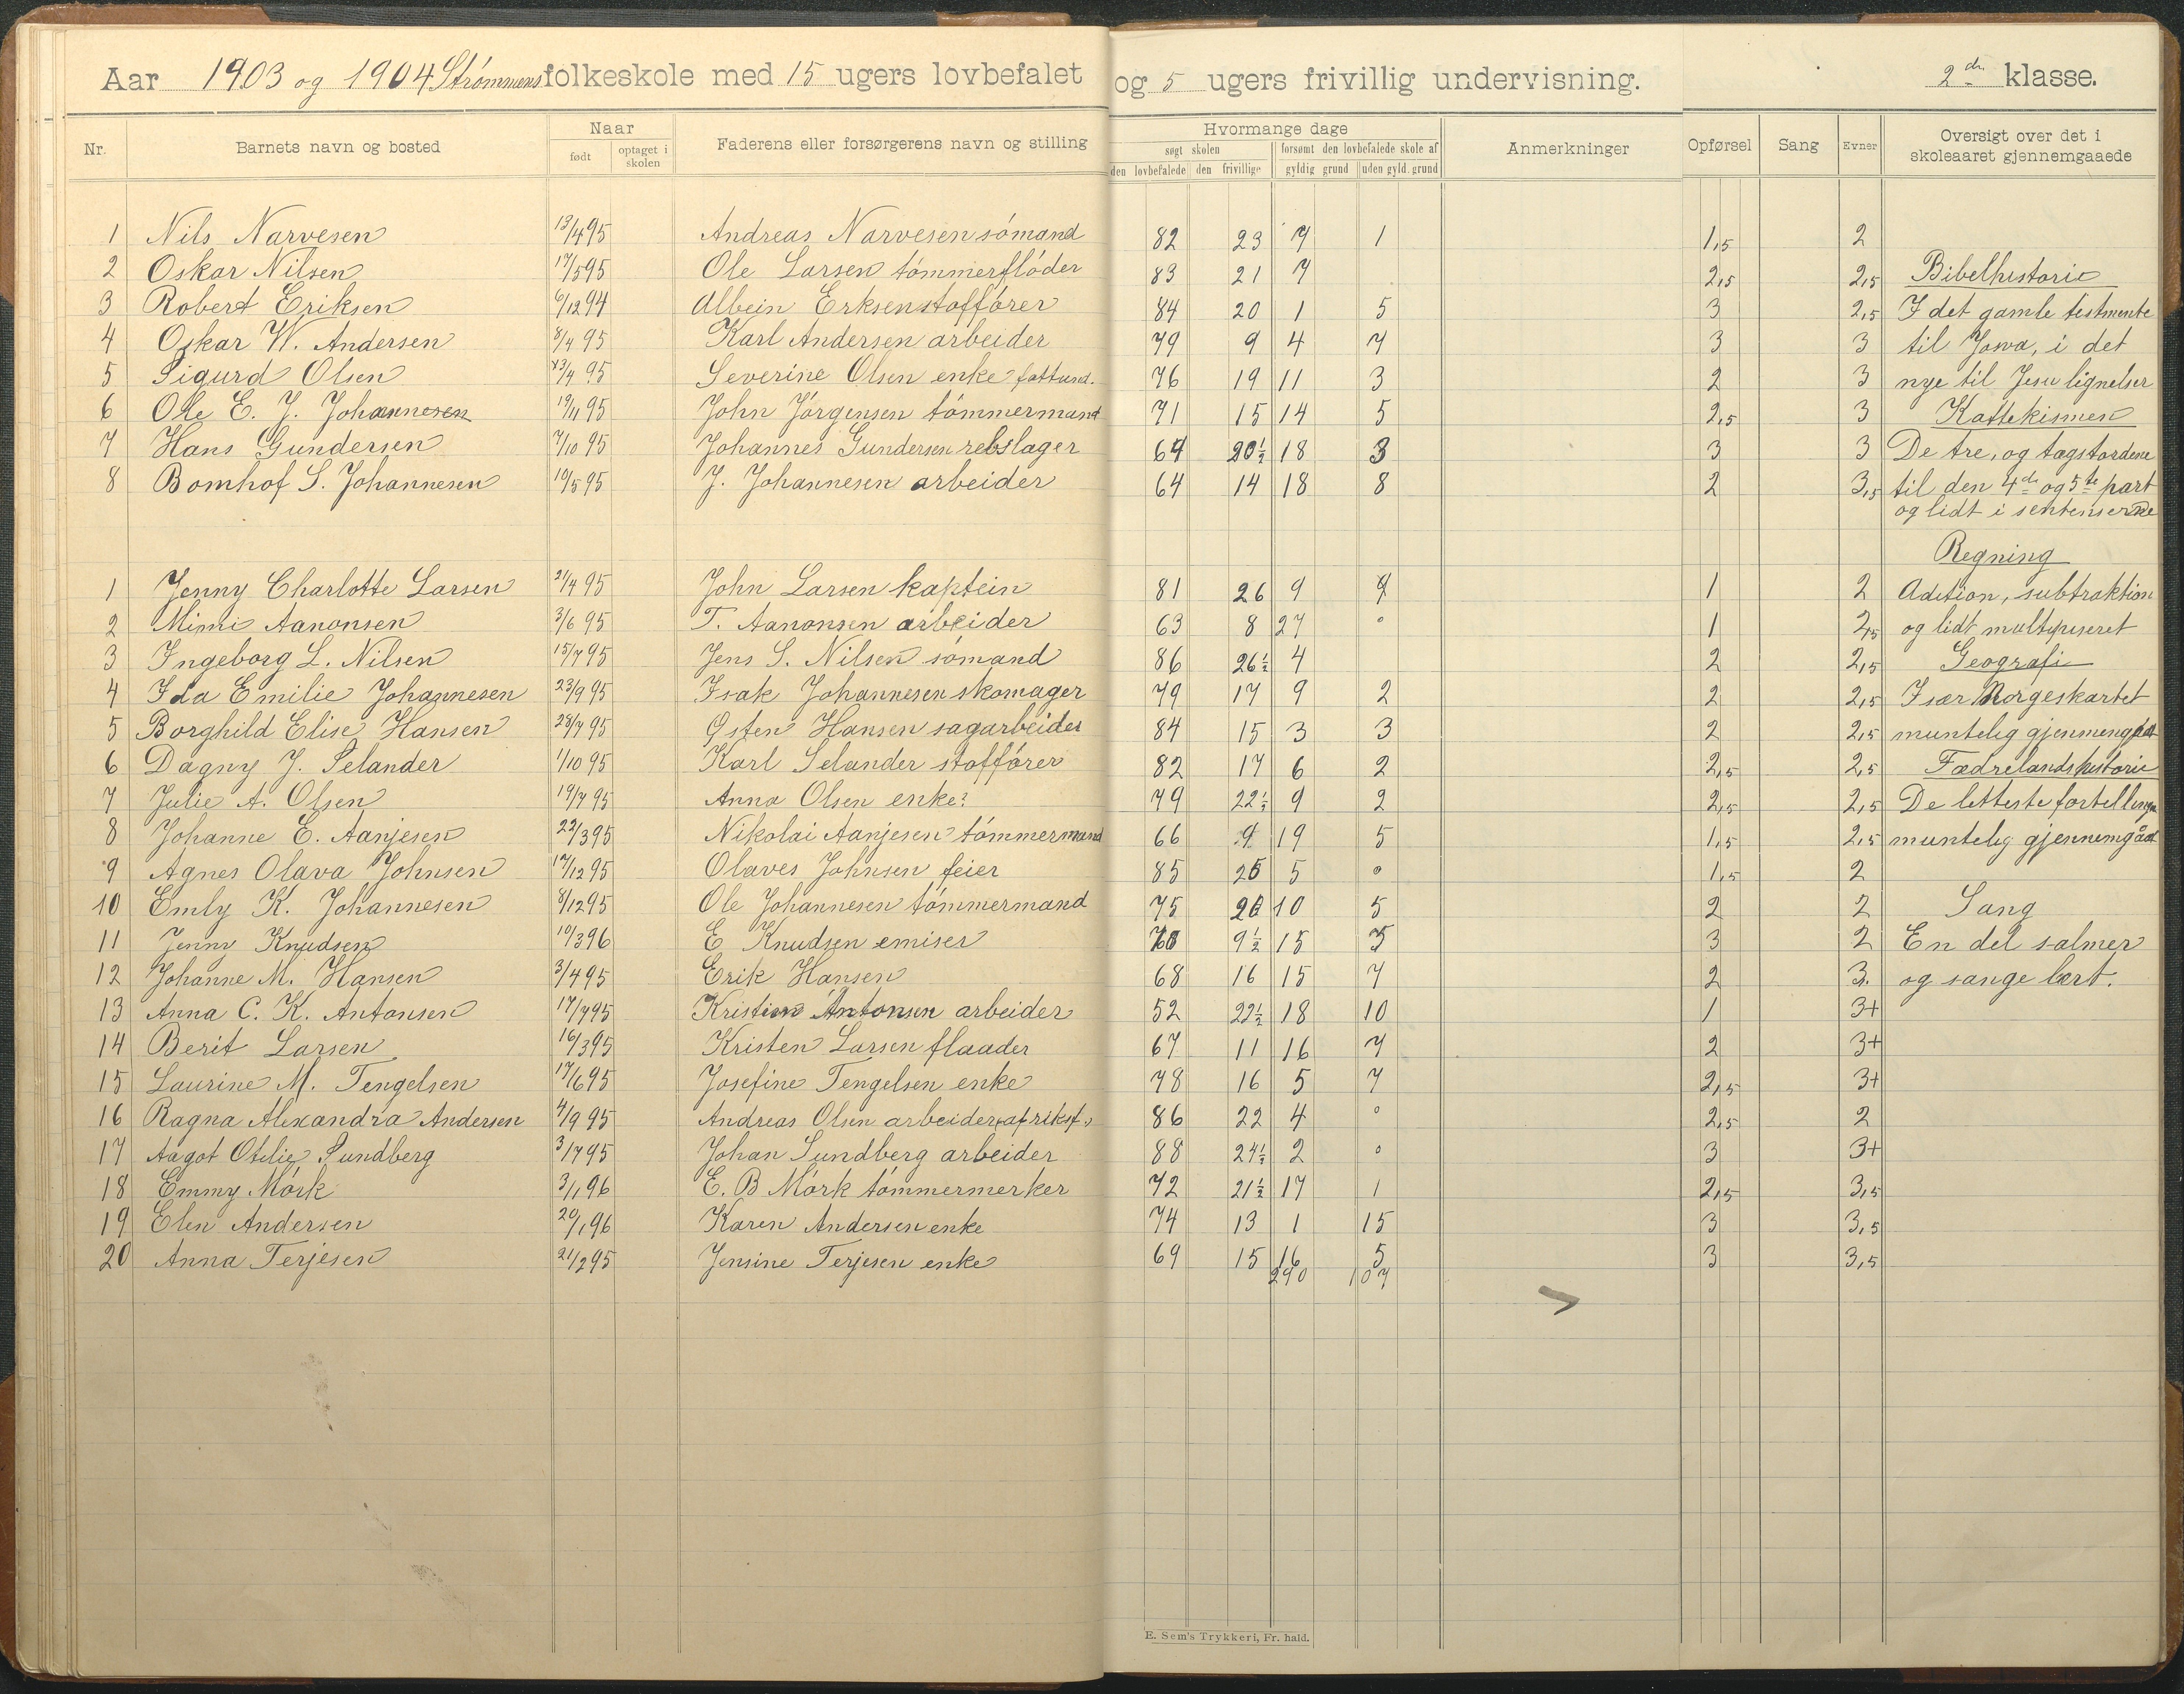 Aar 1903 og 1904 Strømmens folkeskole med 15 ugers lovbefalet og 5 ugers frivillig undervisning. 2den klasse.
Nr. Barnets navn og bosted Naar født optaget i skolen Faderens eller forsørgerens navn og stilling Hvormange dage søgt skolen den lovbefalede den frivillige forsømt den lovbefalede skole af gyldig grund uden gyld. grund Anmerkninger Opførsel Sang Evner Oversigt over det i skoleaaret gjennemgaaede
1 Nils Narvesen 13/4 95 Andreas Narvesen sómand 82 23 7 1 1,5 2
2 Oskar Nilsen 17/5 95 Ole Larsen tómmerflóder 83 21 7 2,5 2,5 Bibelhistorie
3 Robert Eriksen 6/12 94 Albein Erksen stoffórer 84 20 1 5 3 2,5 I det gamle testmente
4 Oskar W. Andersen 8/4 95 Karl Andersen arbeider 79 9 4 7 3 3 til Josva, i det
5 Sigurd Olsen 23/4 95 Severine Olsen enke fattund. 76 19 11 3 2 3 nye til Jesu lignelser
6 Ole E. J. Johannesen 19/11 95 John Jórgensen tómmermand 71 15 14 5 2,5 3 Kattekismen
7 Hans Gundersen 7/10 95 Johannes Gundersen rebslager 64 20½ 18 3 3 3 De tre, og tagstordene
8 Bomhof S. Johannesen 10/5 95 J. Johannesen arbeider 64 14 18 8 2 3,5 til den 4de og 5te part
og lidt i sentenserne
Regning
1 Jenny Charlotte Larsen 21/4 95 John Larsen kaptein 81 26 9 1 2 Adition, subtraktion
2 Mimi Aanonsen 3/6 95 T. Aanonsen arbeider 63 8 27 0 1 2,5 og lidt multipiseret
3 Ingeborg L. Nilsen 15/7 95 Jens S. Nilsen sómand 86 26½ 4 2 2,5 Geografi
4 Ida Emilie Johannesen 23/9 95 Isak Johannesen skomager 79 17 9 2 2 2,5 Især Norgeskartet
5 Borghild Elise Hansen 28/7 95 Østen Hansen sagarbeider 84 15 3 3 2 2,5 muntelig gjenmengåt
6 Dagny J. Selander 1/10 95 Karl Selander stoffórer 82 17 6 2 2,5 2,5 Fædrelandshistorie
7 Julie A. Olsen 19/7 95 Anna Olsen enke 79 22½ 9 2 2,5 2,5 De letteste fortellinger
8 Johanne E. Aanjesen 22/3 95 Nikolai Aanjesen tómmermand 66 9 19 5 1,5 2,5 muntelig gjennemgået
9 Agnes Olava Johnsen 17/12 95 Olaves Johnsen feier 85 26 5 0 1,5 2
10 Emly K. Johannesen 8/12 95 Ole Johannesen tómmermand 75 26 10 5 2 2 Sang
11 Jenny Knudsen 10/3 96 E Knudsen emiser 70 9½ 15 5 3 2 En del salmer
12 Johanne M. Hansen 3/4 95 Erik Hansen 68 16 15 7 2 3. og sange lært.
13 Anna C. K. Antonsen 17/7 95 Kristian Antonsen arbeider 52 22½ 18 10 1 3+
14 Berit Larsen 16/3 95 Kristen Larsen flaader 67 11 16 7 2 3+
15 Laurine M. Tengelsen 17/6 95 Josefine Tengelsen enke 78 16 5 7 2,5 3+
16 Ragna Alexandra Andersen 4/9 95 Andreas Olsen arbeider 86 22 4 0 2,5 2
17 Aagot Otilie Sundberg 3/7 95 Johan Sundberg arbeider 88 24½ 2 0 3 3+
18 Emmy Mórk 3/1 96 E. B Mórk tómmermerker 72 21½ 17 1 2,5 3,5
19 Elen Andersen 20/1 96 Karen Andersen enke 74 13 1 15 3 3,5
20 Anna Terjesen 21/2 95 Jensine Terjesen enke 69 15 16 5 3 3,5
290 107
E. Sem's Trykkeri, Fr. hald.